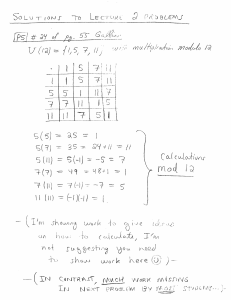 SOLUTIONS TO LECTURE 2 PROBLEMS
[PS] #24 of pg. 55 Gallian
U(12) = {1, 5, 7, 11}, with multiplication modulo 12
· 1 5 7 11
1 1 5 7 11
5 5 1 11 7
7 7 11 1 5
11 11 7 5 1
5(5) = 25 = 1
5(7) = 35 = 24+11 = 11
5(11) = 5(-1) = -5 = 7
7(7) = 49 = 48+1 = 1
7(11) = 7(-1) = -7 = 5
11(11) = (-1)(-1) = 1.
Calculations
mod 12
- (I'm showing work to give ideas
on how to calculate, I'm
not suggesting you need
to show work here ☺)-
-(IN CONTRAST, MUCH WORK MISSING
IN NEXT PROBLEM BY MOST STUDENTS...)-